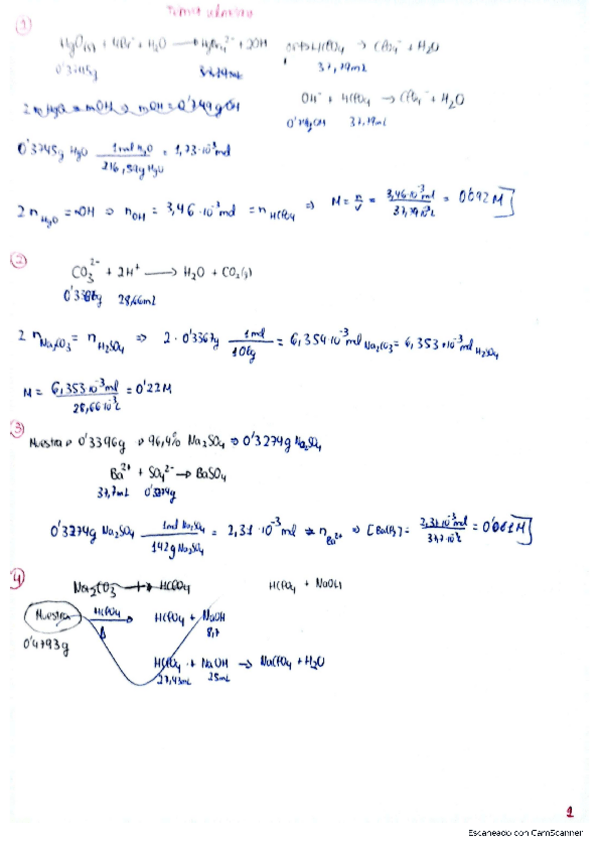 ①
HgO(s) + 4Br⁻ + H₂O → HgBr₄²⁻ + 2OH⁻
HClO₄ → ClO₄⁻ + H₂O
37,79mL
OH⁻ + HClO₄ → ClO₄⁻ + H₂O
37,79mL
0'3745g H₂O 1mol H₂O / 216,59g H₂O = 1,73·10⁻³mol
2n H₂O = nOH ⇒ nOH = 3,46·10⁻³mol = n HClO₄ ⇒ M = n/V = 3,46·10⁻³mol / 37,79·10⁻³L = 0'092M
②
CO₃²⁻ + 2H⁺ → H₂O + CO₂(g)
28,66mL
2 n Na₂CO₃ = n H₂SO₄ ⇒ 2 · 0'3367g 1mol / 106g = 6,354·10⁻³mol Na₂CO₃ = 6,353·10⁻³mol H₂SO₄
M = 6,353·10⁻³mol / 28,66·10⁻³L = 0'22M
③
Muestra ⇒ 0'3396g ⇒ 96,4% Na₂SO₄ ⇒ 0'3274g Na₂SO₄
Ba²⁺ + SO₄²⁻ → BaSO₄
37,7mL 0'3274g
0'3274g Na₂SO₄ 1mol Na₂SO₄ / 142g Na₂SO₄ = 2,31·10⁻³mol = n Ba²⁺ ⇒ = 2,31·10⁻³mol / 37,7·10⁻³L = 0'061M
④
Na₂CO₃ + HClO₄
HClO₄ + NaOH
Muestra HClO₄ → Δ HClO₄ + NaOH
0'4793g
HClO₄ + NaOH → NaClO₄ + H₂O
27,43mL 25mL
1
Escaneado con CamScanner